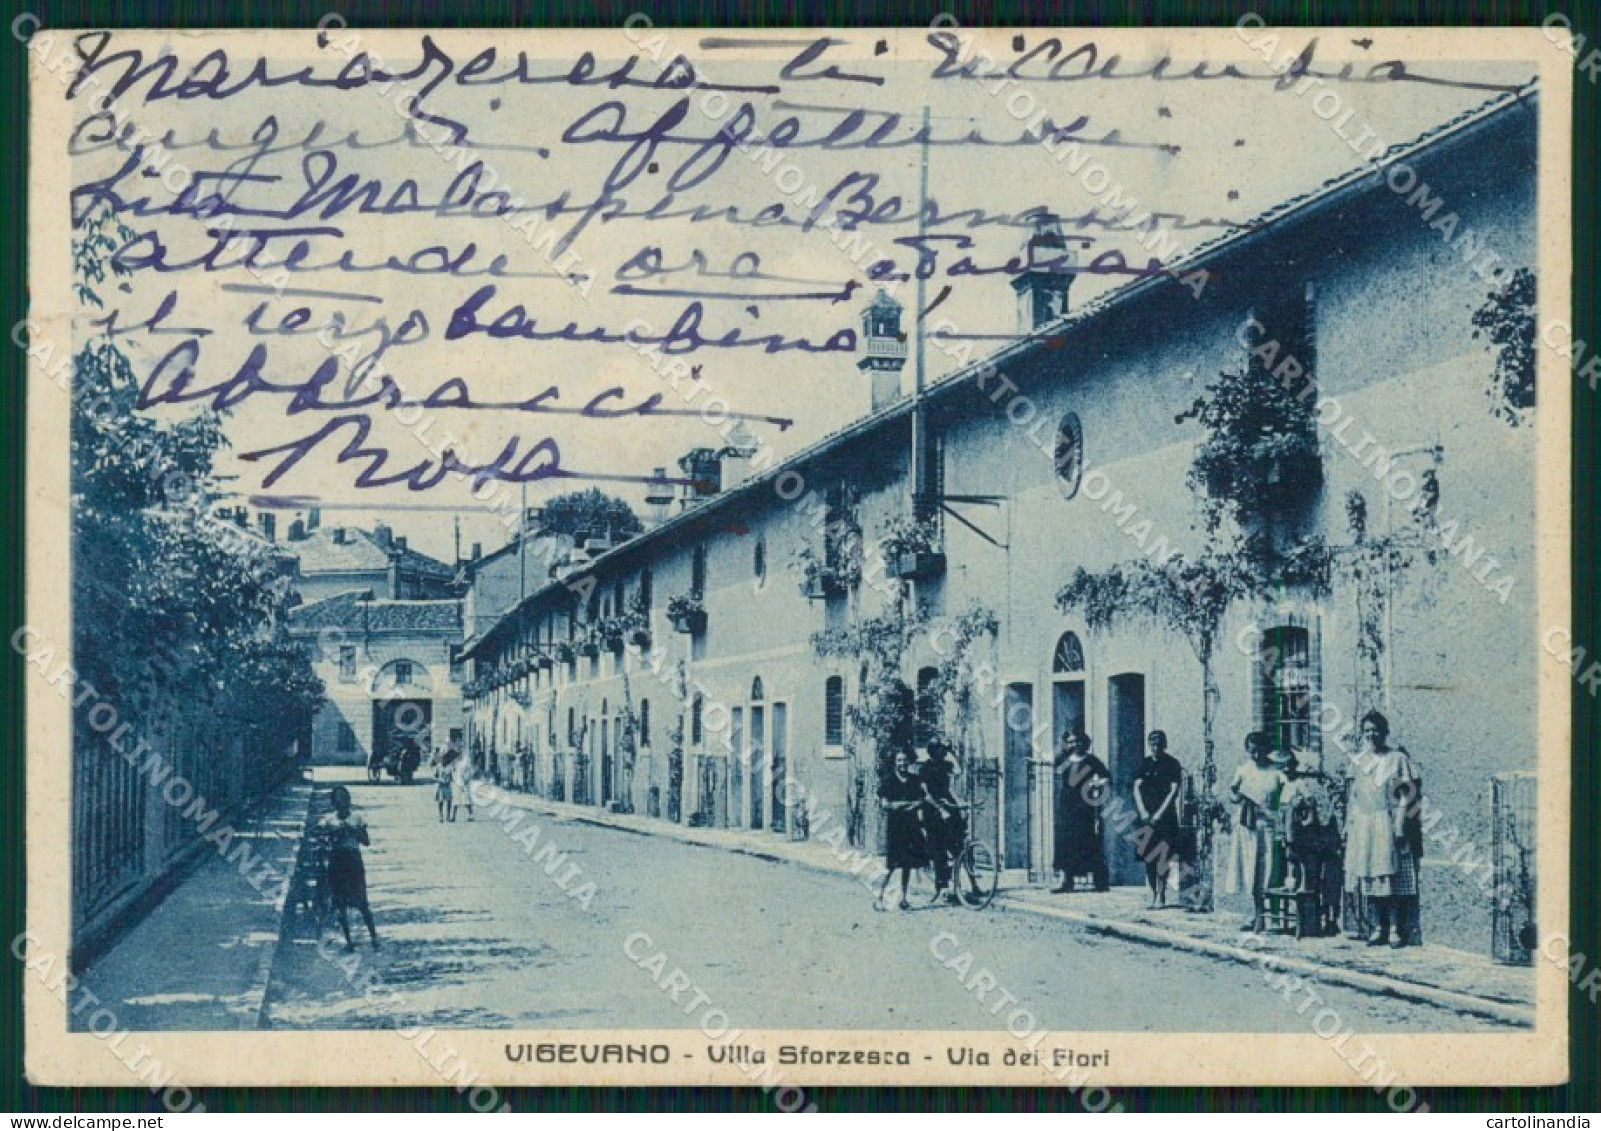 Mariateresa ti ricambia
auguri affettuosi.
Malaspina Bernasconi
attende ora
il terzo bambino
Abbracci
Rosa
VIGEVANO - Villa Sforzesca - Via dei Fiori
CARTOLINANDIA
cartolinandia